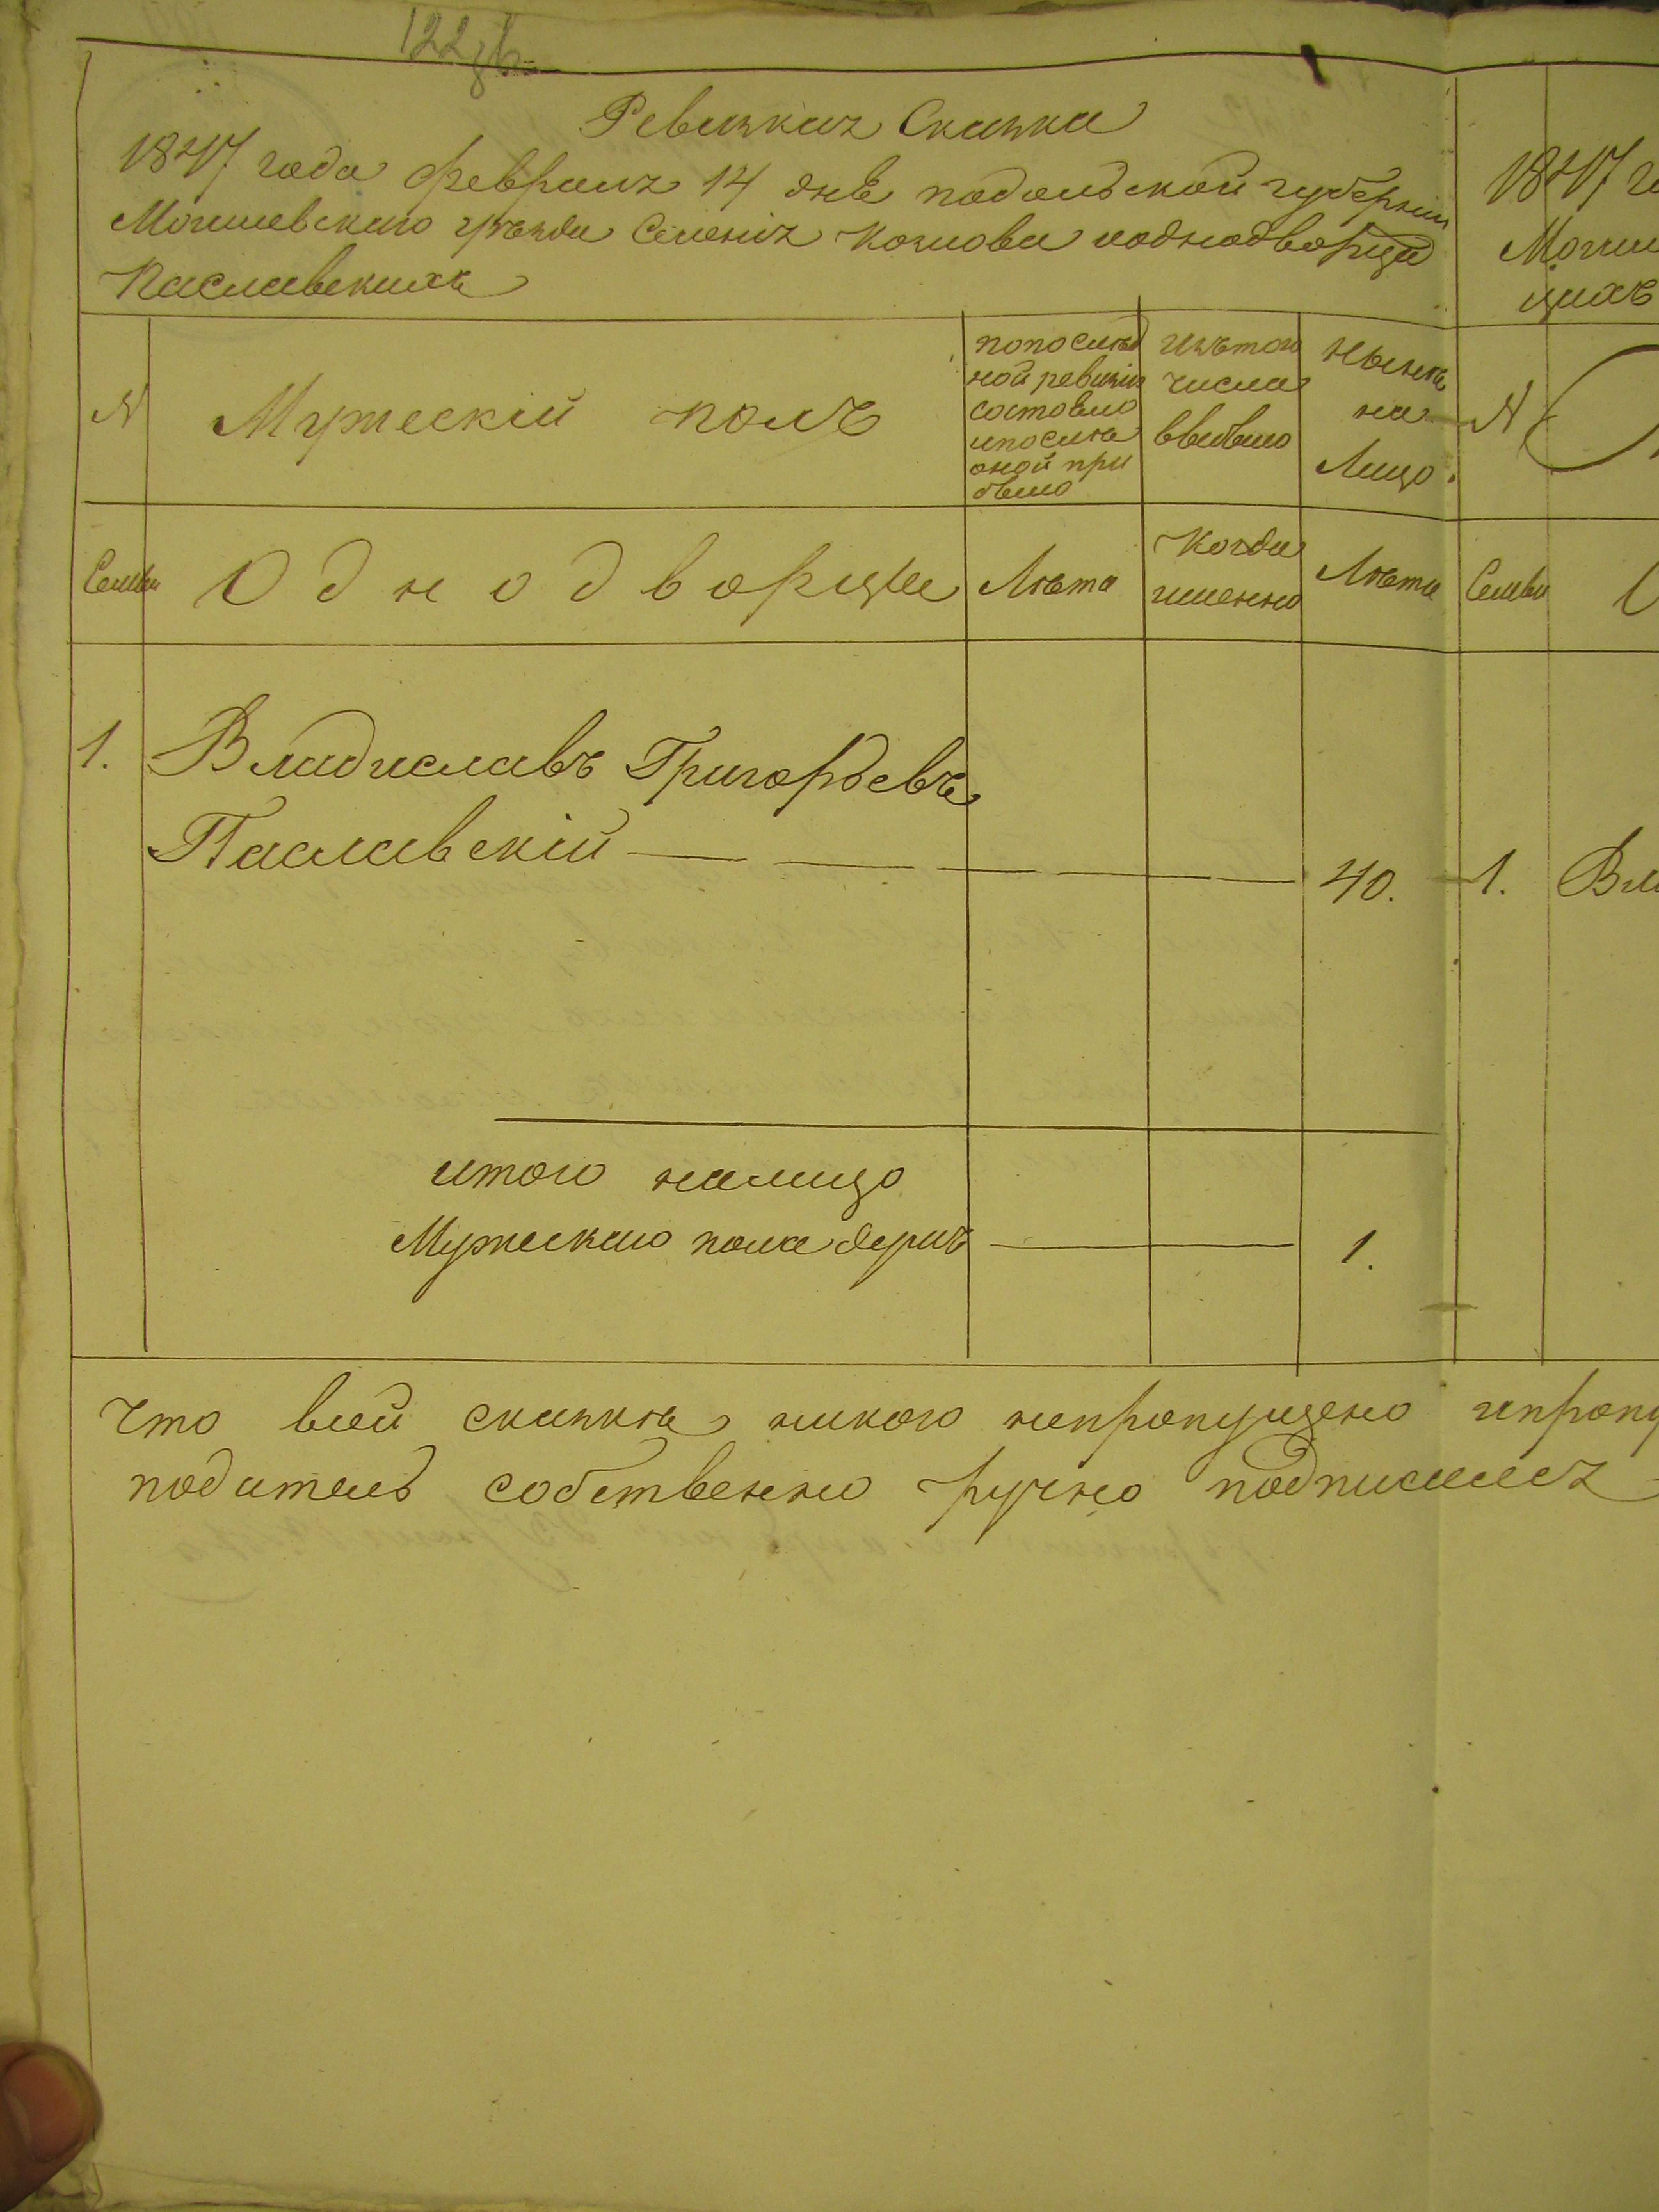 122 зв
Ревизкая Сказка
1847 года февраля 14 дня подольской губернии
Могилевского уезда Селения Козлова иоднодворца
Паславскихъ
N
Мужескій полъ
попослѣд
ной ревизіи
состояло
ипослѣ
оной при
было
изътого
числа
ввибыло
Нынѣ
на
Лицо
Семьи
Однодворцы
Лѣта
Когда
именно
Лѣта
1.
Владиславъ Григорьевъ
Паславскій
40.
итого налицо
Мужеского пола душъ
1.
что всей сказкѣ никого непропущено ипропу
податель собственно ручно подписался
1847 г
Могил
цихъ
N
Семьи
О
1.
Вла